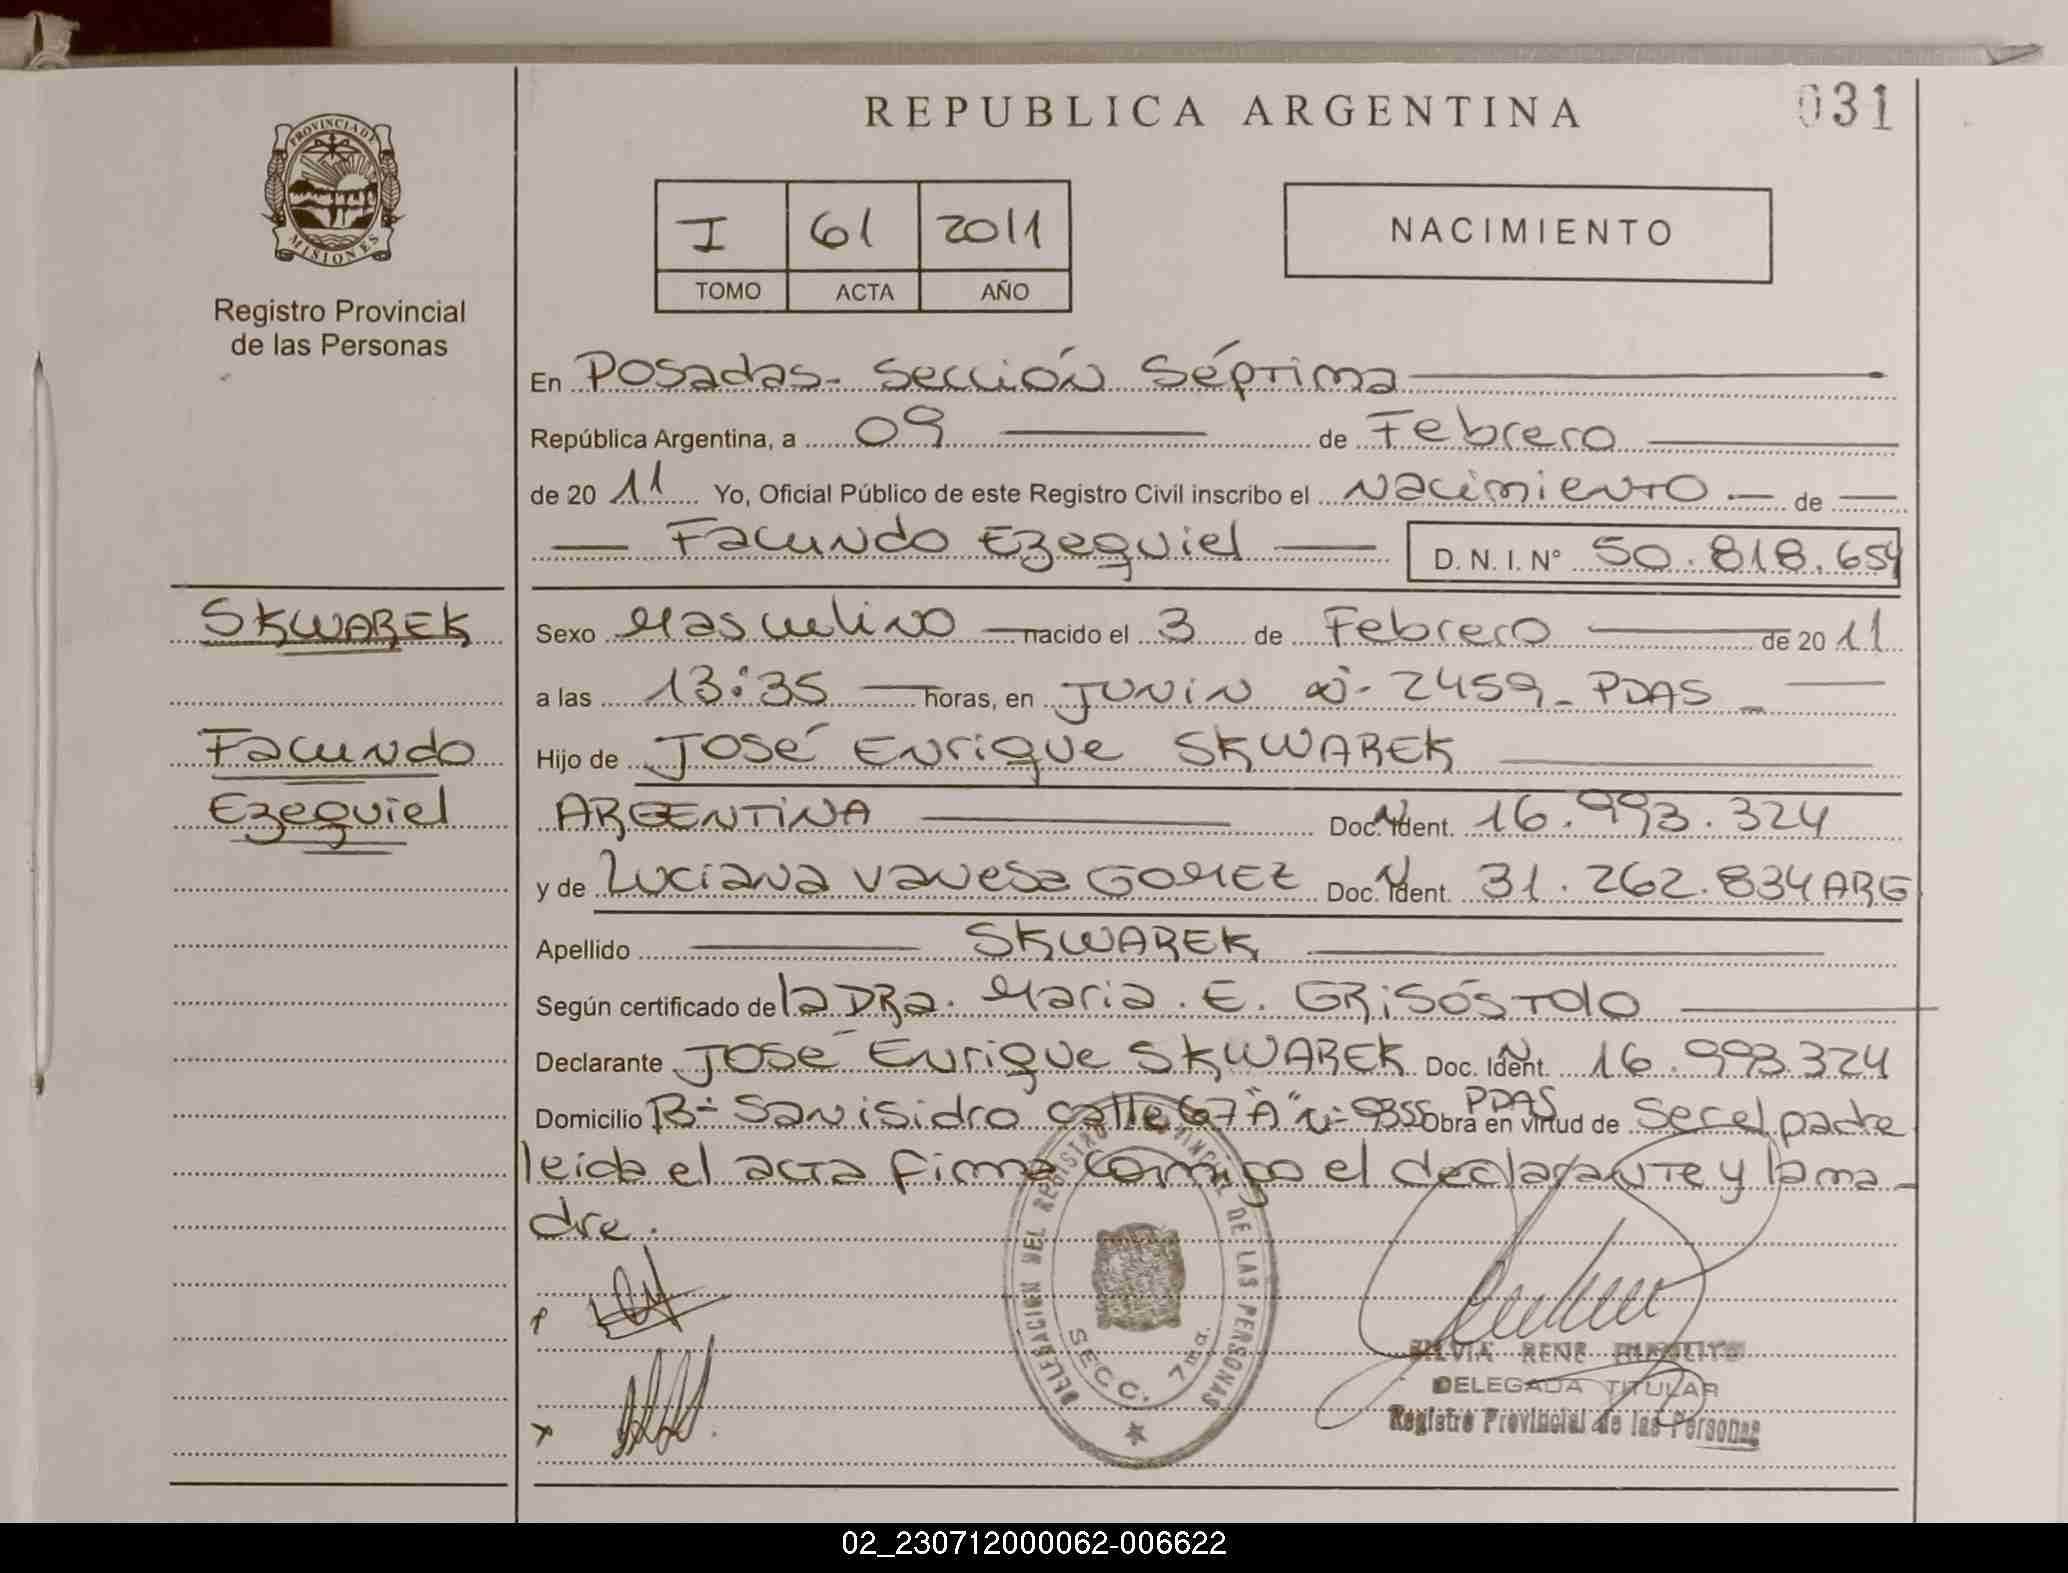 REPUBLICA ARGENTINA
031
PROVINCIA DE
MISIONES
Registro Provincial
de las Personas
I 61 2011
TOMO ACTA AÑO
NACIMIENTO
En Posadas - Sección Séptima
República Argentina, a 09 de Febrero
de 20 11 Yo, Oficial Público de este Registro Civil inscribo el Nacimiento de
Facundo Ezequiel D. N. I. N° 50.818.654
SKWAREK
Facundo
Ezequiel
Sexo Masculino nacido el 3 de Febrero de 20 11
a las 13:35 horas, en JUNIN N°- 2459 - PDAS -
Hijo de José Enrique SKWAREK
ARGENTINA Doc. Ident. N 16.993.324
y de Luciana Vanesa GOMEZ Doc. Ident. N 31.262.834 ARG
Apellido SKWAREK
Según certificado de la DRa. Maria. E. GRISÓSTOLO
Declarante José Enrique SKWAREK Doc. Ident. N 16.993.324
Domicilio B- San isidro calle 67 "A" N- 9355 PDAS Obra en virtud de Ser el padre
leida el acta firma conmigo el declarante y la ma-
dre.
DELEGACION DEL REGISTRO PROVINCIAL DE LAS PERSONAS
SECC. 7ma.
SILVIA RENE
DELEGADA TITULAR
Registro Provincial de las Personas
02_230712000062-006622